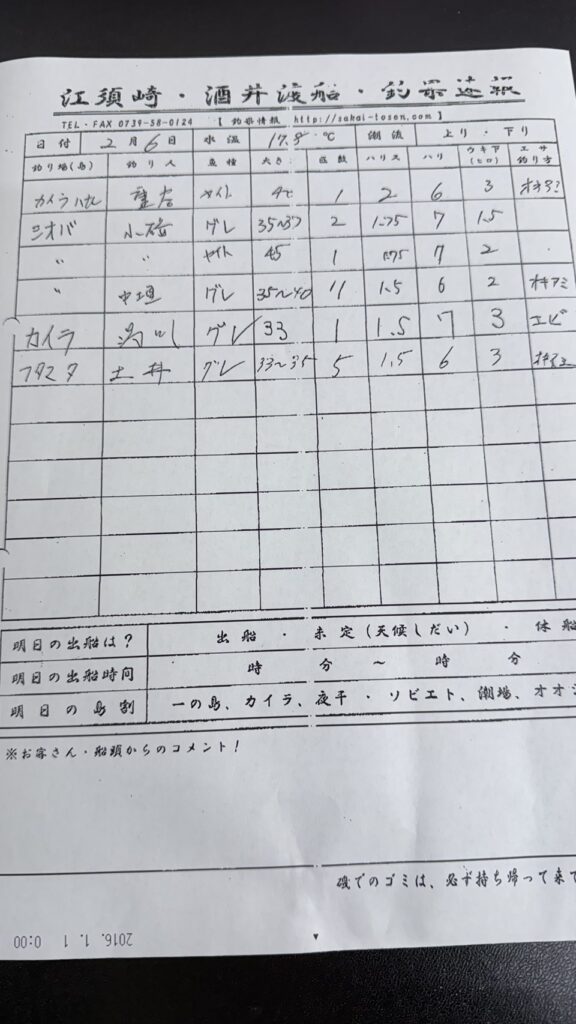 江須崎・酒井渡船・釣果速報
TEL・FAX 0739-58-0124 【 釣果情報 http://sakai-tosen.com 】
日付 2月6日 水温 17.8℃ 潮流 上り・下り
釣り場(島) 釣り人 魚種 大きさ 匹数 ハリス ハリ ウキ下(ヒロ) エサ釣り方
カイラ 1 2 6 3
シオバ 小硲 グレ 35〜37 2 1.75 7 1.5
〃 〃 サイト 45 1 1.75 7 2
〃 中垣 グレ 35〜40 11 1.5 6 2 オキアミ
カイラ グレ 33 1 1.5 7 3 エビ
フタマタ 土井 グレ 33〜35 5 1.5 6 3 オキアミ
明日の出船は? 出船・未定(天候しだい)・休船
明日の出船時間 時 分 〜 時 分
明日の島割 一の島、カイラ、夜干・ソビエト、潮場、オオ
※お客さん・船頭からのコメント!
磯でのゴミは、必ず持ち帰って来て
2016. 1. 1 0:00